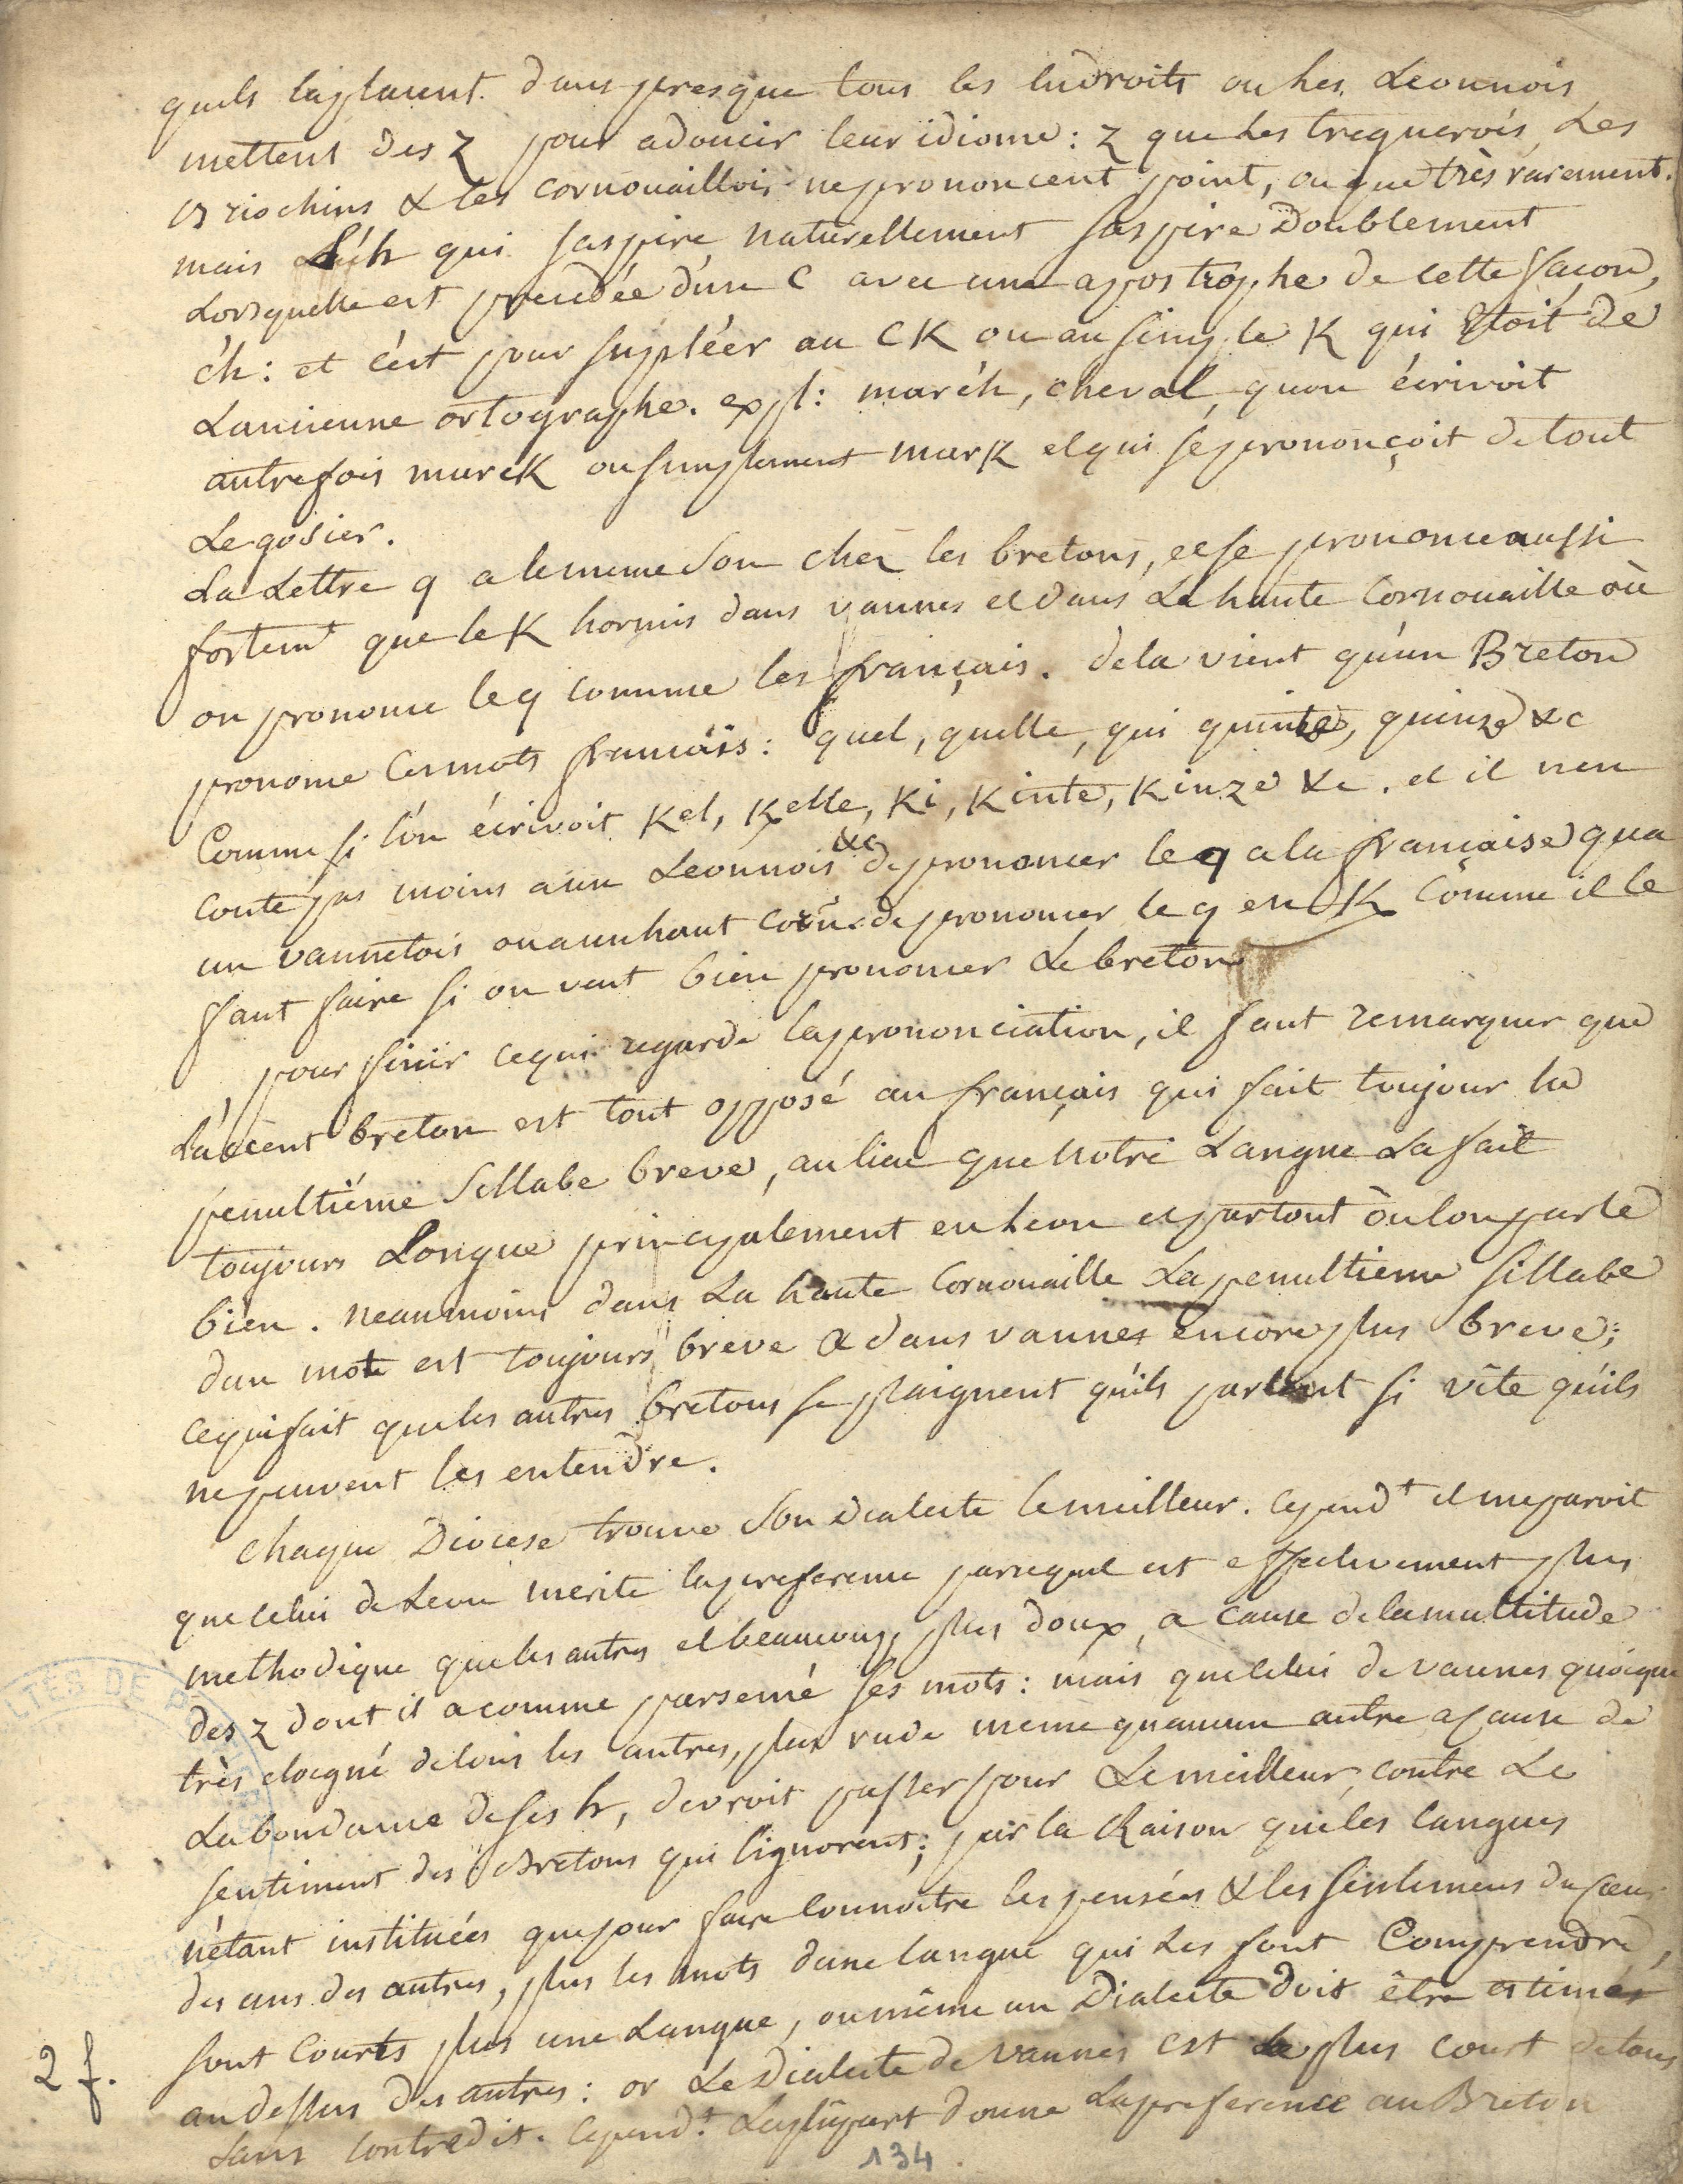 quils laplacent dans presque tous les Endroits ou les Leonnois
mettent des z pour adoucir leur idiome: z que les treguerois, Les
Briochins & les cornouaillois ne prononcent point, ou que très rarement.
mais L'h qui saspire naturellement saspire Doublement
Lorsquelle est precedée d'un C avec une apostrophe de cette façon,
c'h: et c'est pour supléer au CK ou au simple K qui Etoit de
Lancienne ortographe. expl: marc'h, cheval, quon écrivoit
autrefois marcK ou simplement mark et qui se prononçoit de tout
Le gosier.
La Lettre q a le meme son chez les bretons, et se prononce aussi
fortemt que le K hormis dans vannes et dans La haute Cornouaille où
on prononce le q comme les français. de la vient qu'un Breton
prononce les mots français: quel, quelle, qui quinte, quinze &c
Comme si l'on écrivoit Kel, Kelle, Ki, Kinte, Kinze &c. et il nen
coute pas moins a un Leonnois &c de prononcer le q a la française qua
un vannetois ou a un haut corn. de prononcer le q en K Comme il le
faut faire si on veut bien prononcer Le breton
pour finir cequi regarde la prononciation, il faut remarquer que
L'accent breton est tout opposé au français qui fait toujour la
penultiéme sillabe breve, au lieu que Notre Langue La fait
toujours Longue principalement en Leon et partout où lon parle
bien. Neanmoins dans La haute Cornouaille La penultieme sillabe
dun mot est toujours breve & dans vannes encore plus breve;
cequi fait que les autres bretons se plaignent qu'ils parlent si vîte qu'ils
ne peuvent les entendre.
Chaque Diocese trouve Son dialecte le meilleur. Cepend.t il me paroit
que celui de Leon merite la preference parcequil est effectivement plus
methodique que les autres et beaucoup plus doux, a cause de la multitude
des z dont il a comme parsemé ses mots: mais que celui de vannes quoique
très eloigné de tous les autres, plus rude meme quaucun autre a cause de
Labondance de ses h, devroit passer pour Le meilleur, contre Le
sentiment des Bretons qui l'ignorent; par la Raison que les langues
n'étant instituées que pour faire connoitre les pensées & les sentimens du cœur
des uns des autres, plus les mots dune langue qui Les font Comprendre,
sont Courts plus une Langue, ou même un Dialecte doit être estimés
au dessus des autres: or Le Dialecte de Vannes est Le plus court de tous
sans contredit. Cepend.t La plûpart donne La preference au Breton
2 f.
134.